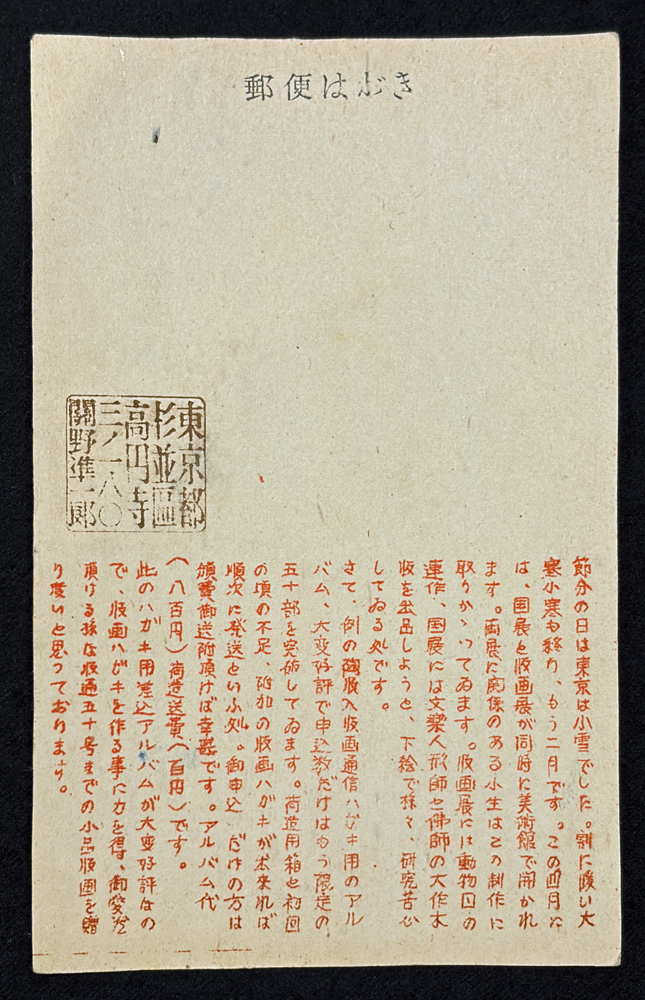 郵便はがき
東京都
杉並區
高円寺
三ノ一八〇
關野準一郎
節分の日は東京は小雪でした。割に暖い大
寒小寒も終り、もう二月です。この四月に
は、国展と版画展が同時に美術館で開かれ
ます。両展に関係のある小生はその制作に
取りかゝってゐます。版画展には動物園の
連作、国展には文楽人形師と佛師の大作木
版を出品しようと、下絵で様々、研究苦心
してゐる処です。
さて、例の版入版画通信ハガキ用のアル
バム、大変好評で申込数だけはもう限定の
五十部を突破してゐます。荷造用箱も初回
の頃の不足、附加の版画ハガキが出来れば
順次に発送といふ処。御申込 だけの方は
頒費御送附頂けば幸甚です。アルバム代
(八百円)荷造送費(百円)です。
此のハガキ用差込アルバムが大変好評なの
で、版画ハガキを作る事に力を得、御愛 
頂ける様な版通五十号までの小品版画を贈
り度いと思っております。